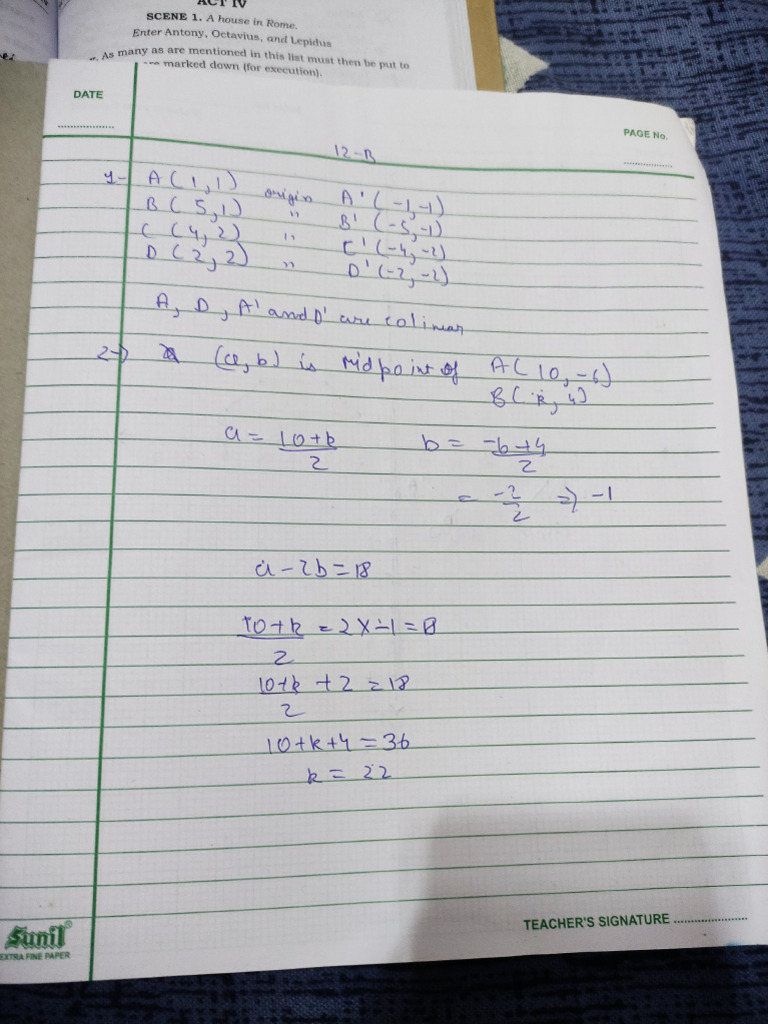 ACT IV
SCENE 1. A house in Rome.
Enter Antony, Octavius, and Lepidus
As many as are mentioned in this list must then be put to
marked down (for execution).
DATE
PAGE No.
12-B
1- A(1,1) origin A'(-1,-1)
B(5,1) " B'(-5,-1)
C(4,2) " C'(-4,-2)
D(2,2) " D'(-2,-2)
A, D, A' and D' are colinear
2-> (a, b) is midpoint of A(10,-6)
B(k, 4)
a = 10+k/2 b = -6+4/2
= -2/2 => -1
a - 2b = 18
10+k/2 = 2 x -1 = 8
10+k/2 + 2 = 18
10+k+4 = 36
k = 22
TEACHER'S SIGNATURE
Sunil
EXTRA FINE PAPER